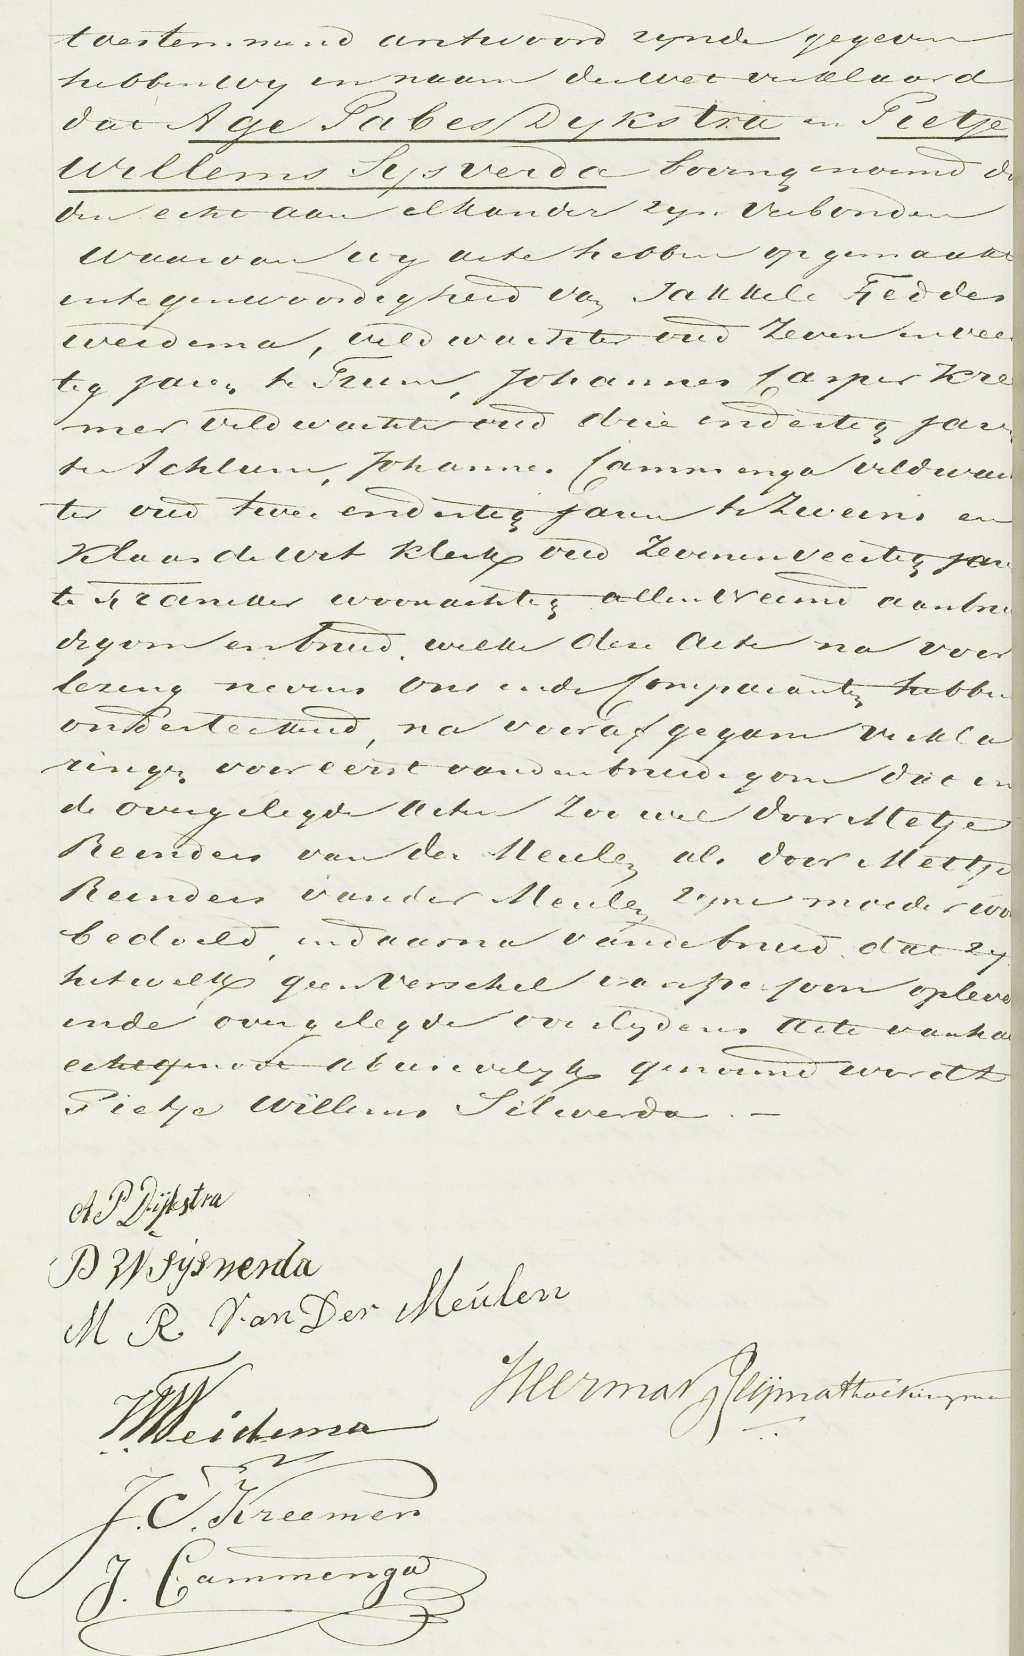 toestemmend antwoord zynde gegeven
hebben wy in naam der wet verklaard
dat Age Pabes Dykstra en Pietje
Willems Sysverda bovengenoemd do
den echt aan elkander zyn verbonden
Waarvan wy acte hebben opgemaakt
in tegenwoordigheid van Jakkele Feddes
Weidema, veldwachter oud Zeven en vee
tig jaren te Tzum, Johannes Casper Kre
mer veldwachter oud drie en dertig jare
te Achlum, Johannes Cammenga veldwach
ter oud twee en dertig jaren te Zweins en
Klaas de Wit klerk oud Zeven en veertig jare
te Franeker woonachtig allen vreemd aan bru
degom en bruid, welke deze Acte na voor
lezing nevens ons en de Comparanten hebben
onderteekend, na vooraf gegane verkla
ringen vooreerst van den bruidegom dat in
de overgelegde Acten Zoo wel door Metje
Reinders van der Meulen als door Mettje
Reinders van der Meulen zyne moeder wo
bedoeld, en daarna van de bruid dat zy
hetwelk geen verschil van persoon opleve
in de overgelegde overlydens Acte van haa
echtgenoot abusievelyk genoemd wordt
Pietje Willems Silverda. —
A P Dijkstra
P W Sijsverda
M R Van Der Meulen
Weidema
J. C. Kreemer
J. Cammenga